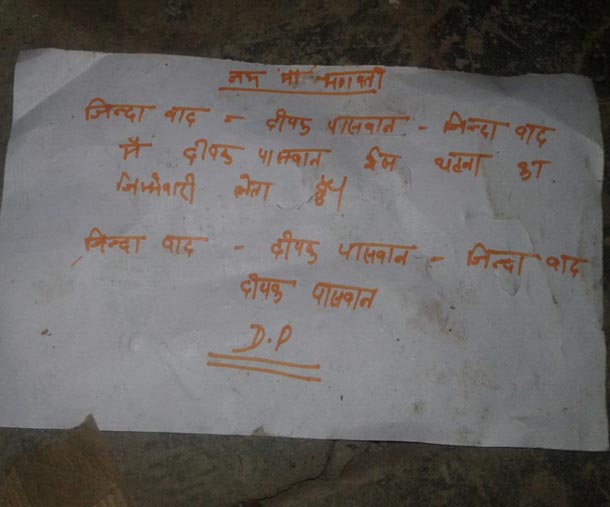 जय माँ भगवती
जिन्दा वाद - दीपक पासवान - जिन्दा वाद
मै दीपक पासवान ईस घटना का
जिम्मेवारी लेता हुँ
जिन्दा वाद - दीपक पासवान - जिन्दा वाद
दीपक पासवान
D.P